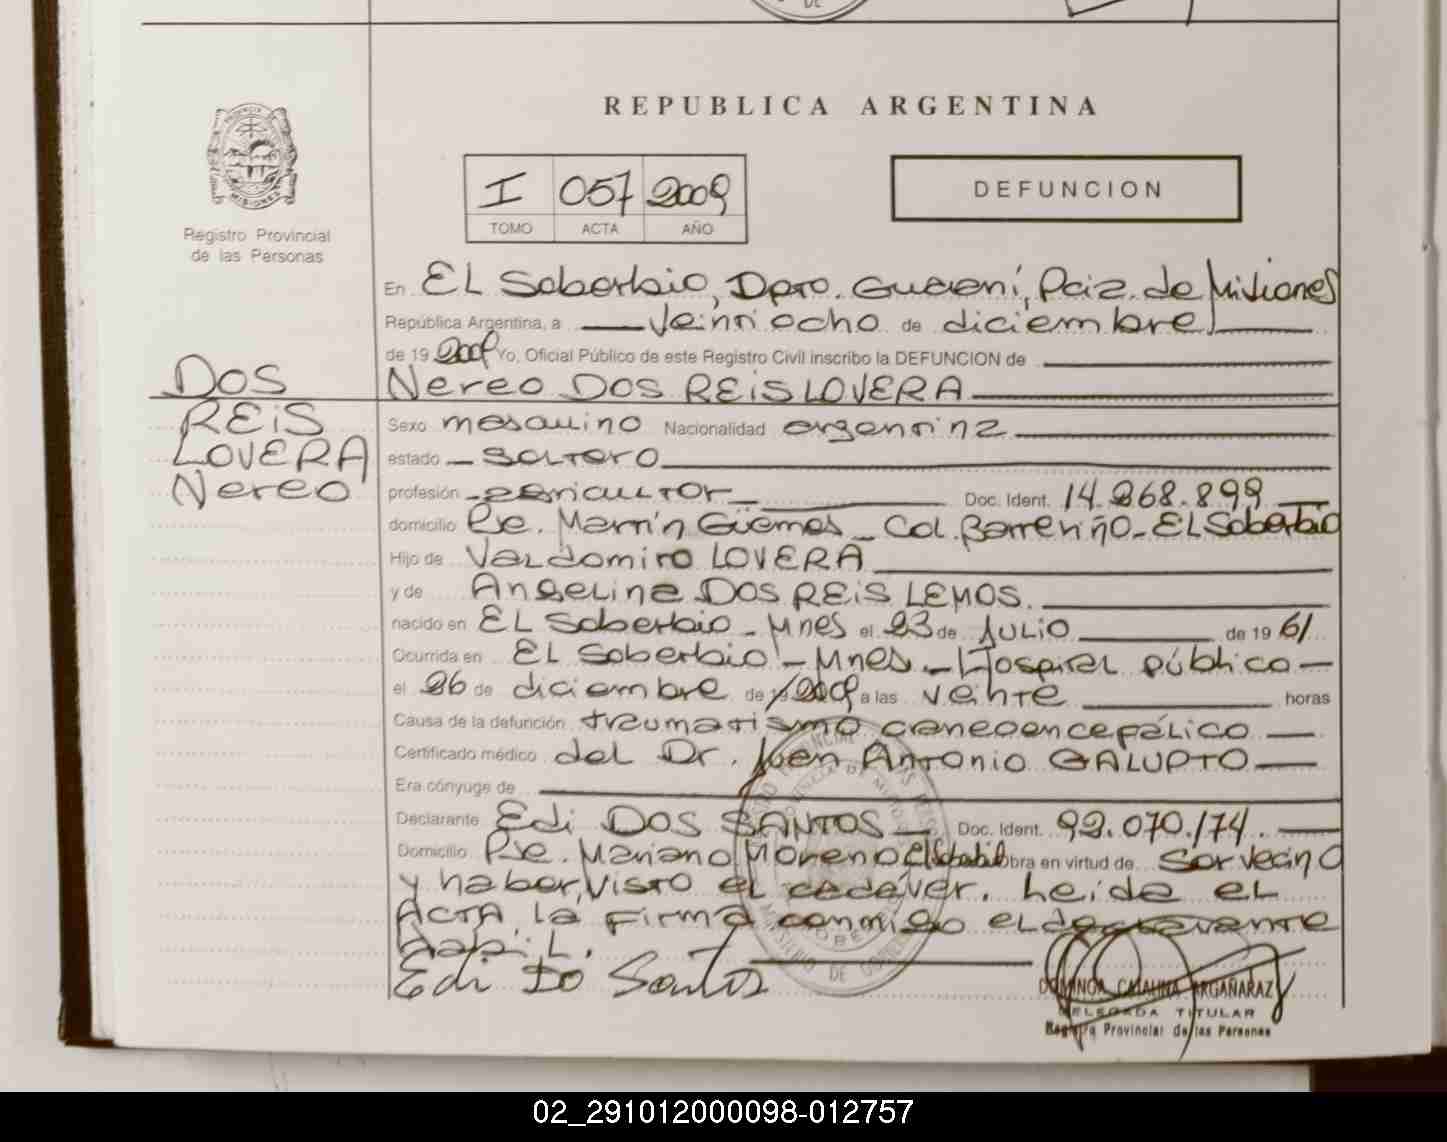 DE
REPUBLICA ARGENTINA
PROVINCIA DE MISIONES
Registro Provincial
de las Personas
I 057 2009
TOMO ACTA AÑO
DEFUNCION
En EL Soberbio, Dpto. Guaraní, Pcia. de Misiones
República Argentina, a veintiocho de diciembre
de 19 2009 Yo, Oficial Público de este Registro Civil inscribo la DEFUNCION de
Nereo DOS REIS LOVERA
DOS
REIS
LOVERA
Nereo
Sexo masculino Nacionalidad argentina
estado soltero
profesión agricultor Doc. Ident. 14.268.899
domicilio Pje. Martín Güemes - Col. Barreriño - EL Soberbio
Hijo de Valdomiro LOVERA
y de Angelina DOS REIS LEMOS.
nacido en EL Soberbio - Mnes el 23 de JULIO de 19 61
Ocurrida en EL Soberbio - Mnes. - Hospital público
el 26 de diciembre de 2009 a las veinte horas
Causa de la defunción traumatismo craneoencepálico
Certificado médico del Dr. Juan Antonio GALUPTO
Era cónyuge de
Declarante Edi DOS SANTOS Doc. Ident. 92.070.174.
Domicilio Pje. Mariano Moreno El Soberbio Obra en virtud de ser vecino
y haber visto el cadáver. Leída el
ACTA, la firma conmigo el declarante
Edi Do Santos
DOMINGA CATALINA ARGAÑARAZ
DELEGADA TITULAR
Registro Provincial de las Personas
02_291012000098-012757